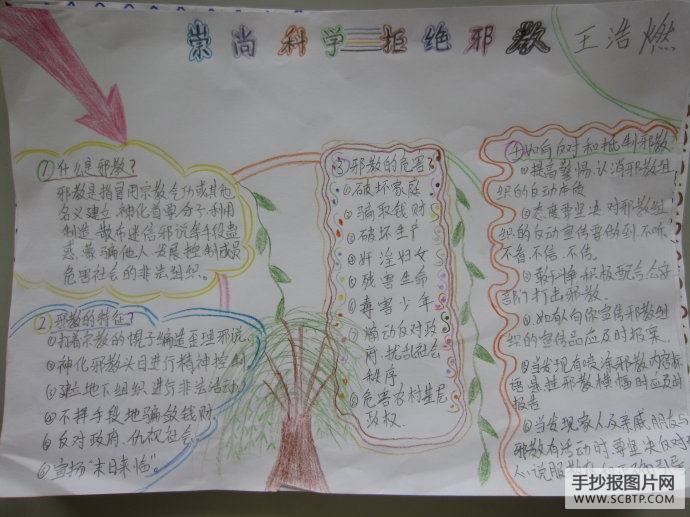 崇尚科学 拒绝邪教
王浩燃
①什么是邪教?
邪教是指冒用宗教气功或其他
名义建立 神化首要分子利用
制造、散布迷信邪说等手段蛊
惑、蒙骗他人、发展控制成员
危害社会的非法组织。
②邪教的特征?
①打着宗教的幌子编造歪理邪说。
②神化邪教头目进行精神控制
③建立地下组织进行非法活动
④不择手段地骗敛钱财
⑤反对政府、仇视社会
⑥宣扬"末日来临"。
③邪教的危害?
①破坏家庭
②骗取钱财
③破坏生产
④奸淫妇女
⑤残害生命
⑥毒害少年
⑦煽动反对政
府 扰乱社会
秩序
⑧危害农村基层
政权.
④如何反对和抵制邪教
①提高警惕、认清邪教组
织的反动本质
②态度要坚决 对邪教组
织的反动宣传要做到 不听、
不看、不信、不传。
③敢斗争积极配合公安
部门打击邪教.
④如有人向你宣传邪教组
织的宣传品应及时报案.
⑤当发现有喷涂邪教内容标
语悬挂邪教横幅时应及时
报告
⑥当发现家人及亲戚、朋友与
邪教有活动时、要坚决反对
手抄报图片网
WWW.SCBTP.COM